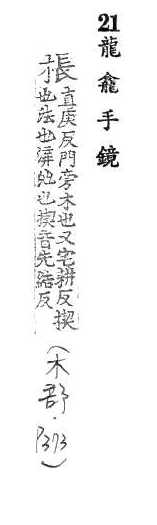 21 龍龕手鏡
棖 直庚反門旁木也又宅耕反揳
也法也也揳音先結反
(木部·P373)